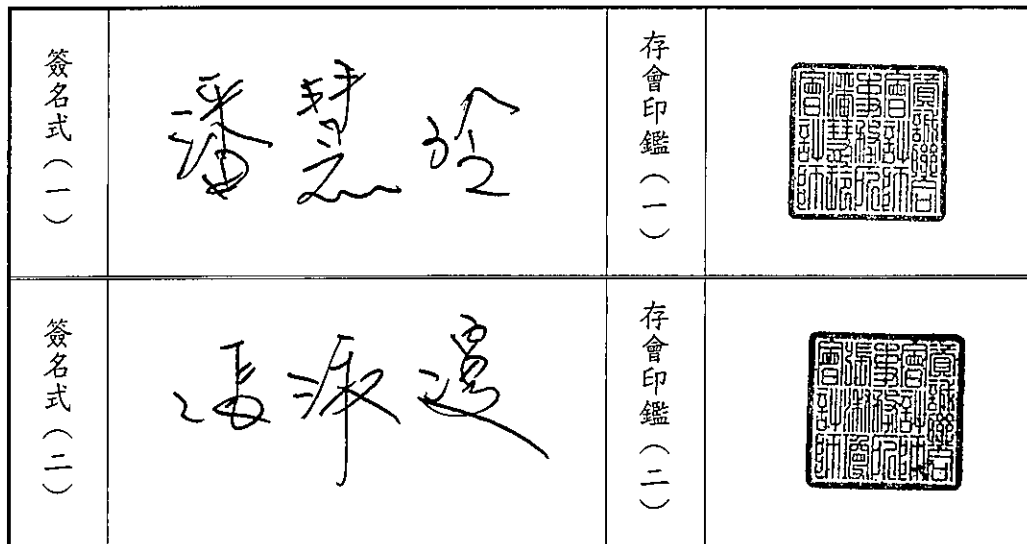 簽名式（一）
潘慧玲
存會印鑑（一）
資誠聯合
會計師
事務所
潘慧玲
會計師
簽名式（二）
存會印鑑（二）
資誠聯合
會計師
事務所
會計師